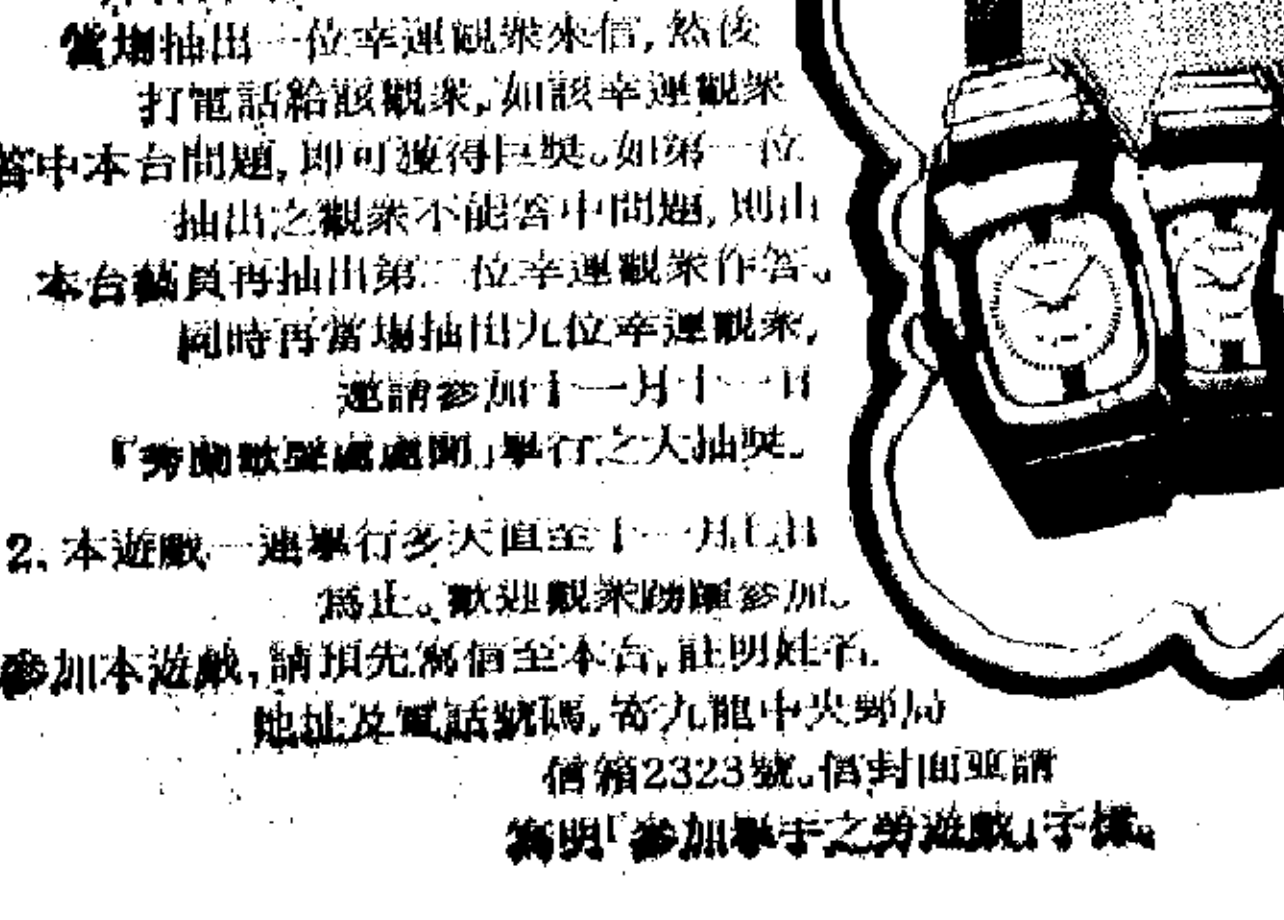 當場抽出一位幸運觀眾來信,然後
打電話給該觀眾,如該幸運觀眾
答中本台問題,即可獲得巨獎。如第一位
抽出之觀眾不能答中問題,則由
本台藝員再抽出第二位幸運觀眾作答。
同時再當場抽出九位幸運觀眾,
邀請參加十一月十一日
「勞動歌聲處處聞」舉行之大抽獎。
2. 本遊戲一連舉行多天直至十一月七日
為止。歡迎觀眾踴躍參加。
參加本遊戲,請預先寫信至本台,註明姓名
地址及電話號碼,寄九龍中央郵局
信箱2323號。信封面並請
寫明「參加舉手之勞遊戲」字樣。